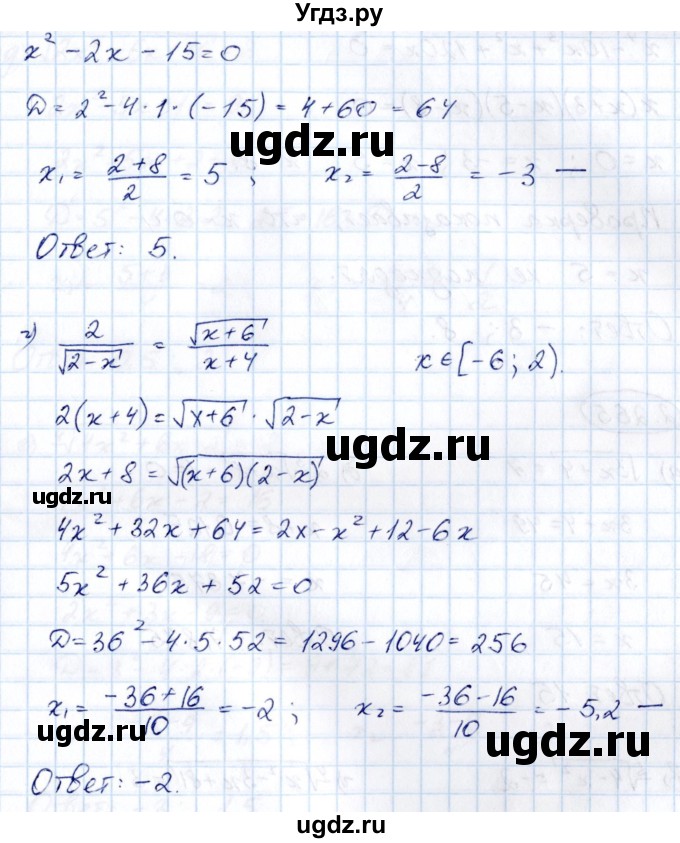 Угдз.ру
x² - 2x - 15 = 0
D = 2² - 4·1·(-15) = 4 + 60 = 64
ugdz.ru
ugdz.ru
x₁ = (2+8)/2 = 5 ; x₂ = (2-8)/2 = -3 —
Ответ: 5.
ugdz.ru
г) 2/√(2-x) = √(x+6)/(x+4) x ∈ [-6; 2).
2(x+4) = √(x+6) · √(2-x)
ugdz.ru
2x + 8 = √((x+6)(2-x))
ugdz.ru
4x² + 32x + 64 = 2x - x² + 12 - 6x
5x² + 36x + 52 = 0
ugdz.ru
D = 36² - 4·5·52 = 1296 - 1040 = 256
x₁ = (-36+16)/10 = -2 ; x₂ = (-36-16)/10 = -5,2 —
ugdz.ru
ugdz.ru
Ответ: -2.
ugdz.ru